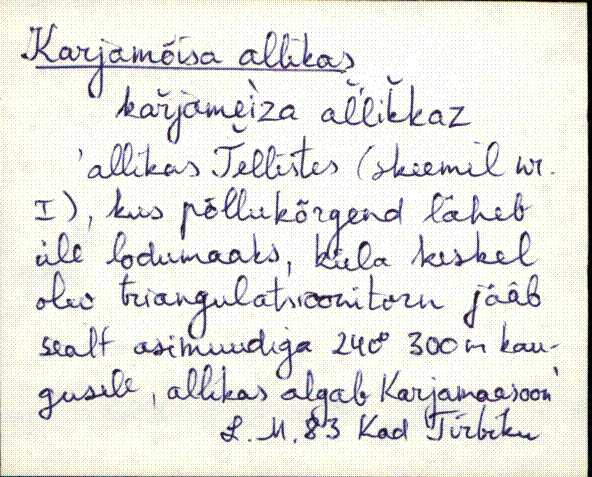 Karjamõisa allikas
kaŕjamèi̬za ălĭk̆kaz
'allikas Tellistes (skeemil nr.
I), kus põllukõrgend läheb
üle lodumaaks, küla keskel
olev triangulatsioonitorn jääb
sealt asimuudiga 240° 300 m kau-
gusele, allikas algab Karjamaasoon'
L. M. 83 Kad Tirbiku